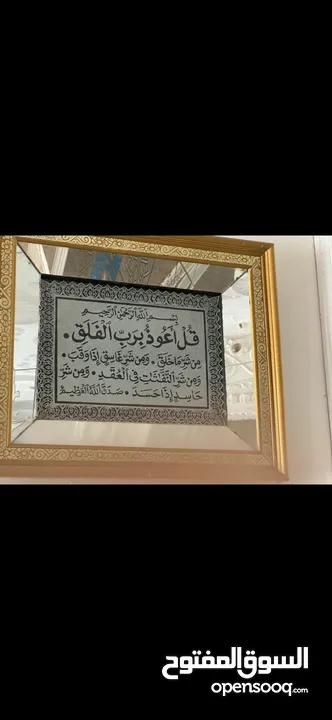 بسم الله الرحمن الرحيم
قل أعوذ برب الفلق •
من شر ما خلق • ومن شر غاسق إذا وقب •
ومن شر النفاثات في العقد • ومن شر
حاسد إذا حسد • صدق الله العظيم
السوق المفتوح
opensooq.com